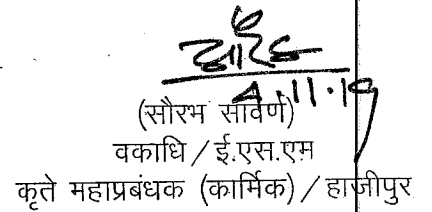 4.11.19
(सौरभ सावर्ण)
वकाधि / ई.एस.एम
कृते महाप्रबंधक (कार्मिक) / हाजीपुर